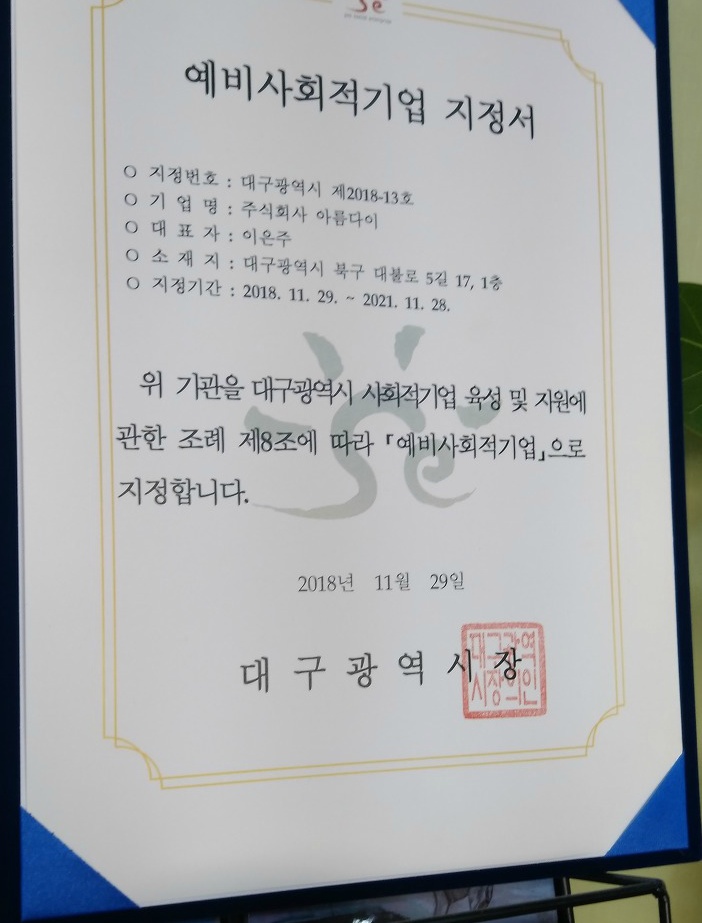 예비사회적기업 지정서
○ 지정번호 : 대구광역시 제2018-13호
○ 기 업 명 : 주식회사 아름다이
○ 대 표 자 : 이은주
○ 소 재 지 : 대구광역시 북구 대불로 5길 17, 1층
○ 지정기간 : 2018. 11. 29. ~ 2021. 11. 28.
위 기관을 대구광역시 사회적기업 육성 및 지원에
관한 조례 제8조에 따라 「예비사회적기업」으로
지정합니다.
2018년 11월 29일
대 구 광 역 시 장
대구광역
시장의인